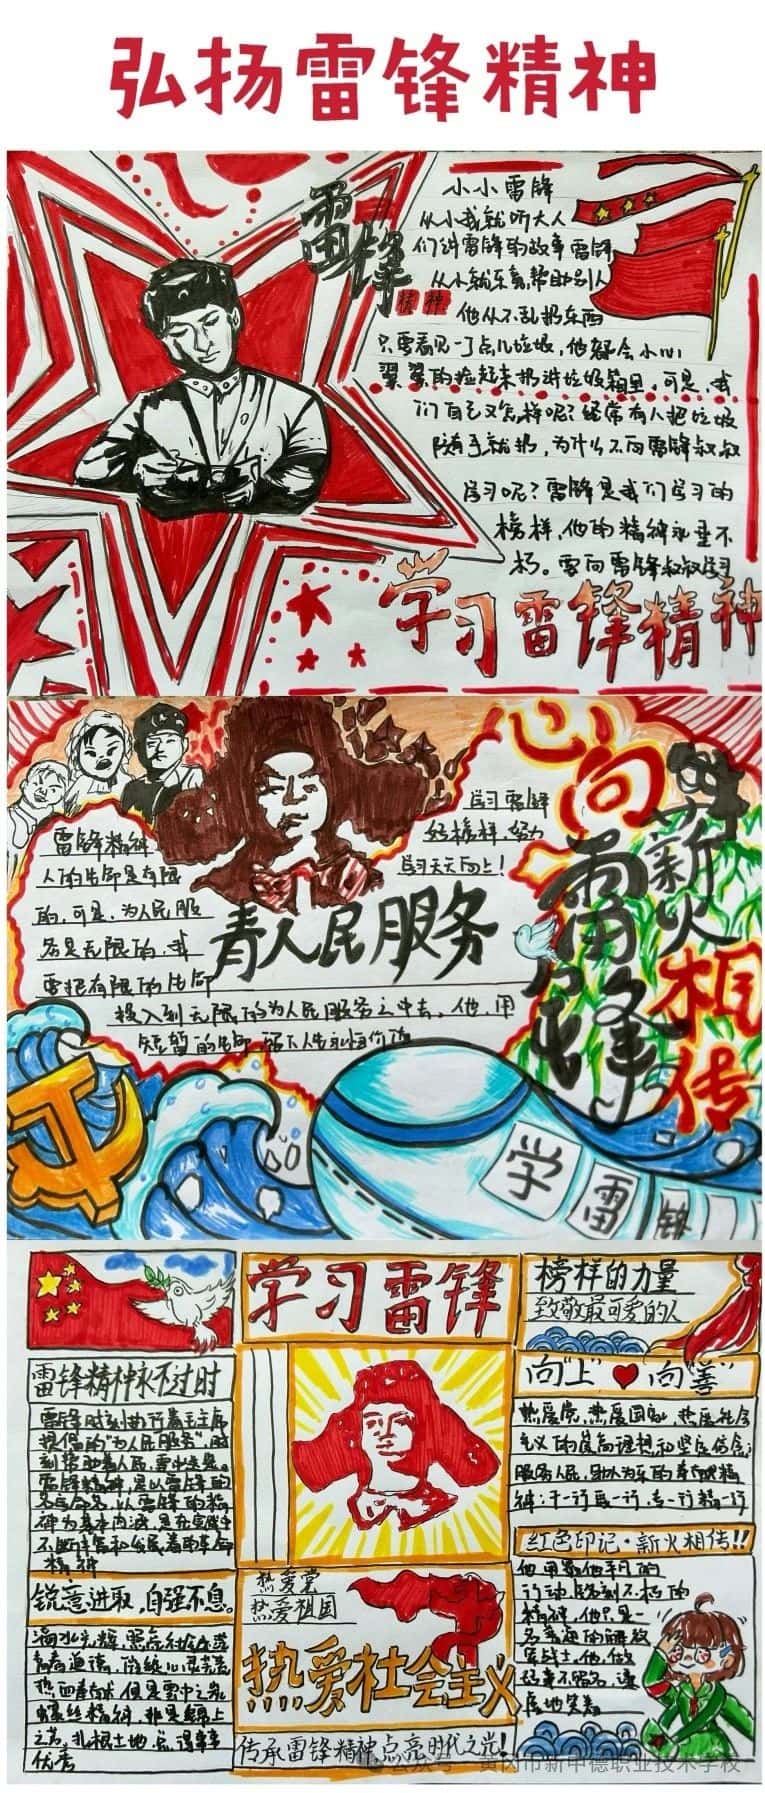 弘扬雷锋精神
雷锋
精神
小小雷锋
从小我就听大人
们讲雷锋的故事雷锋
从小就乐意帮助别人
他从不乱扔东西
只要看见一丁点儿垃圾，他都会小心
翼翼的捡起来扔进垃圾箱里，可是，我
们自己又怎样呢？经常有人把垃圾
随手就扔，为什么不向雷锋叔叔
学习呢？雷锋是我们学习的
榜样，他的精神永垂不
朽。要向雷锋叔叔学习
学习雷锋精神
学习雷锋
好榜样，努力
学习天天向上！
雷锋精神
人的生命是有限
的，可是，为人民服
务是无限的，我
要把有限的生命
投入到无限的为人民服务之中去。他，用
短暂的生命
青人民服务
心向雷锋
薪火相传
学雷锋
学习雷锋
榜样的力量
致敬最可爱的人
雷锋精神永不过时
雷锋时刻执行着毛主席
提倡的“为人民服务”，时
刻帮助着人民，
雷锋精神，是以雷锋的
名字命名，以雷锋的精
神为基本内涵，是在实践中
不断丰富和发展着的革命
精神
锐意进取，自强不息。
螺丝精神，
之花，扎根土地，
优秀
热爱党
热爱祖国
热爱社会主义
传承雷锋精神点亮时代之光！
向“上”向“善”
热爱党，热爱国家，热爱社会
主义的崇高理想和坚定信念；
服务人民，助人为乐的奉献精
神；干一行爱一行，专一行精一行
红色印记·薪火相传！！
他用最他平凡的
行动，铸刻不朽的
精神，他只是一
名普通的解放
军战士，他，做
好事不留名，
公众号·黄冈市新中德职业技术学校